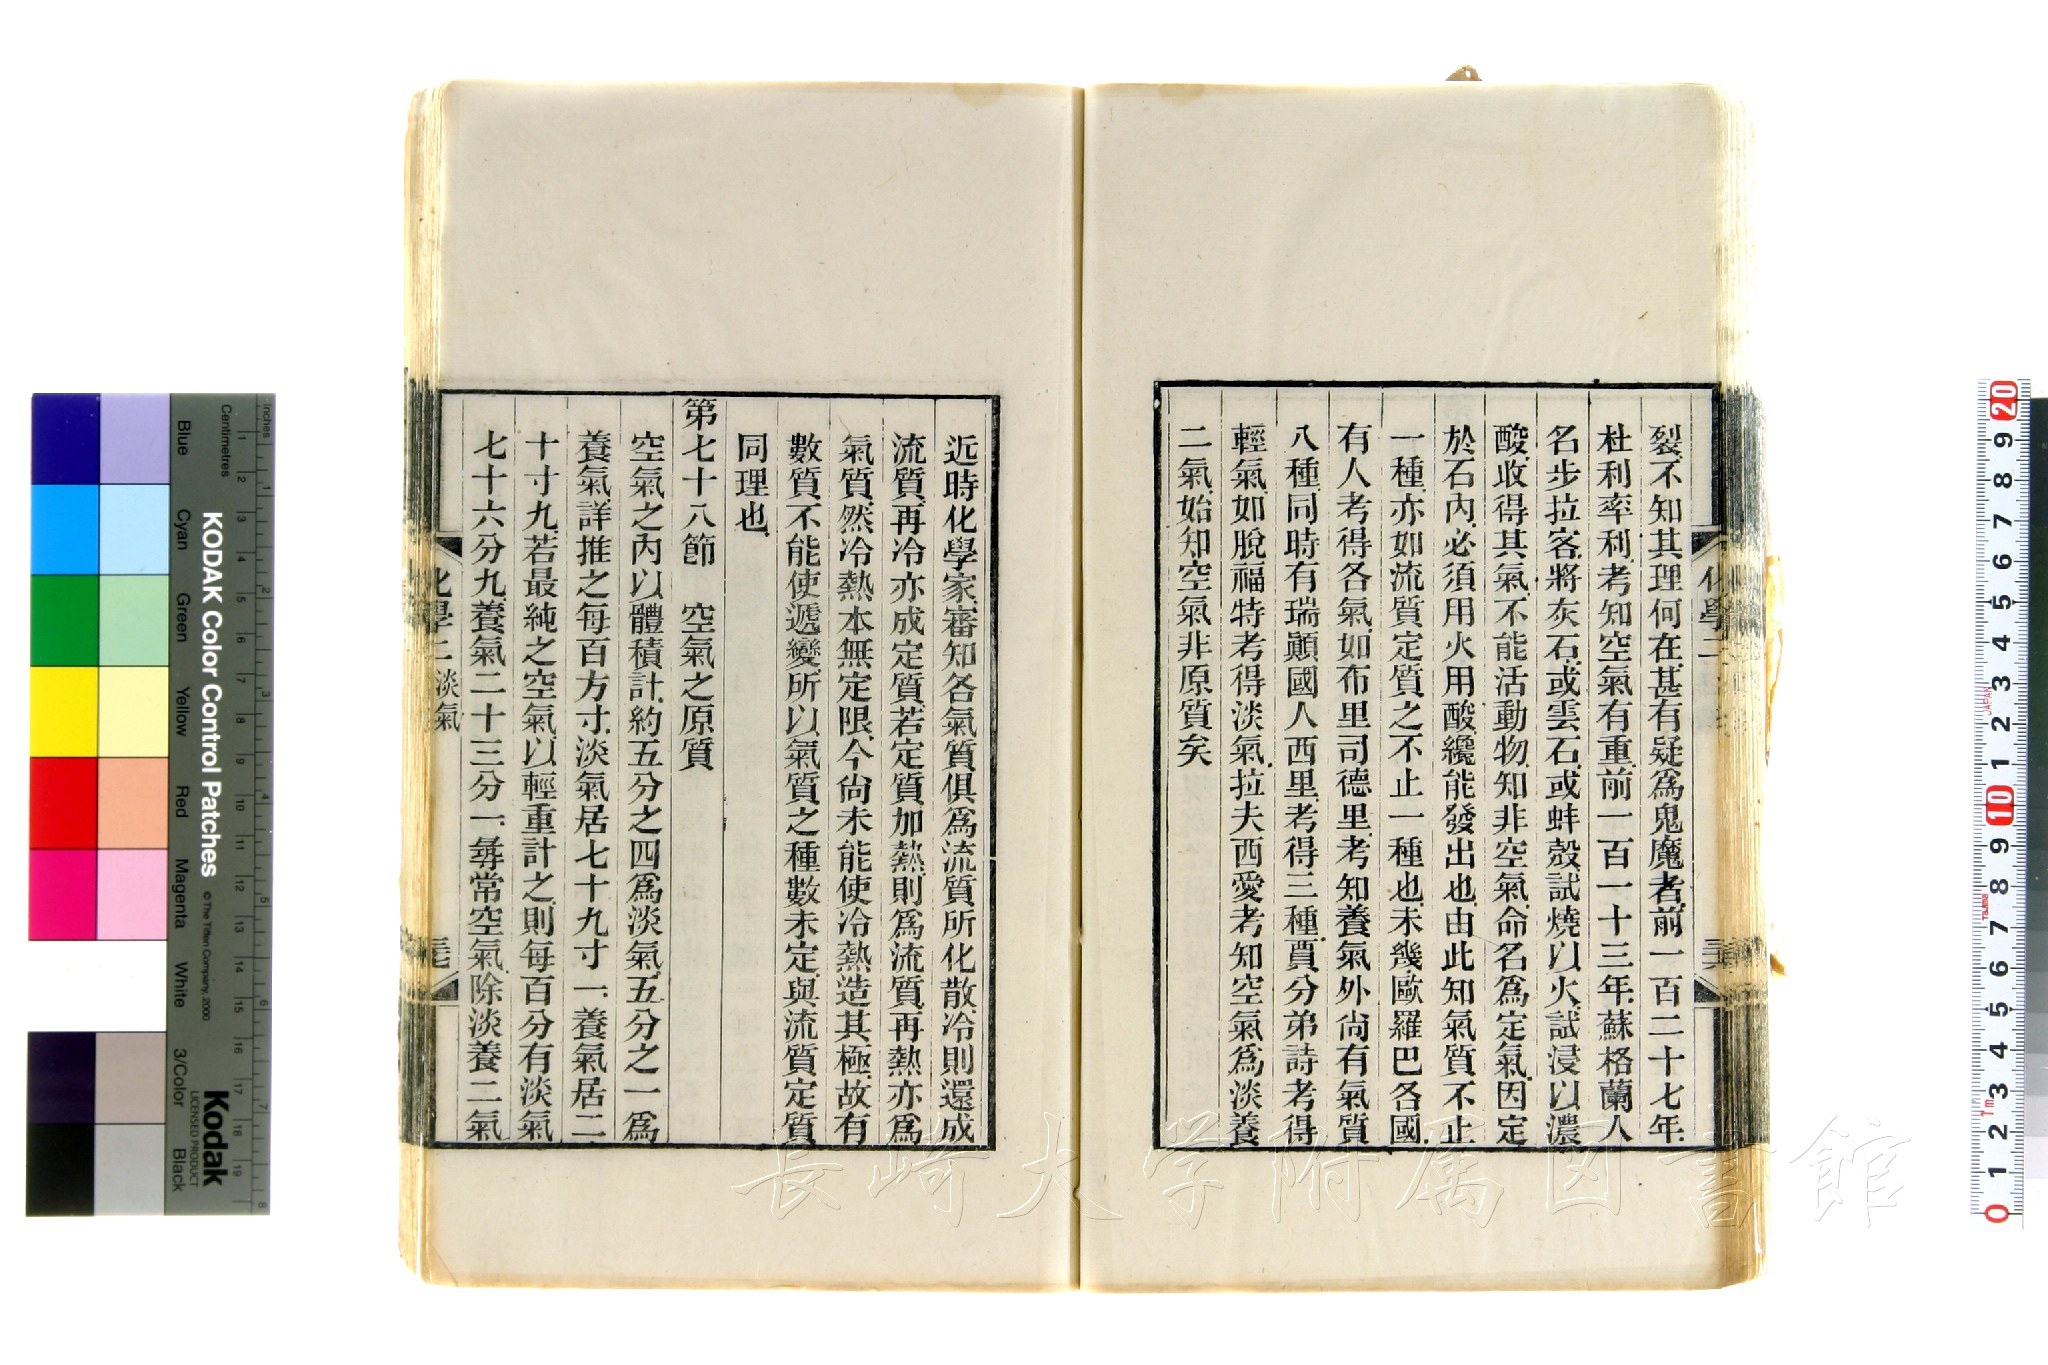 裂、不知其理何在、甚有疑爲鬼魔者、前一百二十七年、
杜利率利、考知空氣有重、前一百一十三年、蘇格蘭人
名步拉客、將灰石、或雲石、或蚌殼、試燒以火、試浸以濃
酸、收得其氣、不能活動物、知非空氣、命名爲定氣、因定
於石內、必須用火用酸纔能發出也、由此知氣質不止
一種、亦如流質定質之不止一種也、未幾、歐羅巴各國、
有人考得各氣、如布里司德里、考知養氣外、尙有氣質
八種、同時有瑞顚國人西里、考得三種、賈分弟詩考得
輕氣、如脫福特考得淡氣、拉夫西愛考知空氣爲淡養
二氣、始知空氣非原質矣
化學二
近時化學家、審知各氣質、俱爲流質所化散、冷則還成
流質、再冷亦成定質、若定質加熱、則爲流質、再熱亦爲
氣質、然冷熱本無定限、今尙未能使冷熱造其極、故有
數質不能使遞變、所以氣質之種數未定、與流質定質
同理也、
第七十八節 空氣之原質
空氣之內、以體積計、約五分之四爲淡氣、五分之一爲
養氣、詳推之、每百方寸、淡氣居七十九寸一、養氣居二
十寸九、若最純之空氣、以輕重計之、則每百分有淡氣
七十六分九、養氣二十三分一、尋常空氣、除淡養二氣
化學二 淡氣
KODAK Color Control Patches
© The Tiffen Company, 2000
Kodak
LICENSED PRODUCT
Inches
Centimetres
Blue
Cyan
Green
Yellow
Red
Magenta
White
3/Color
Black
長崎大学附属図書館